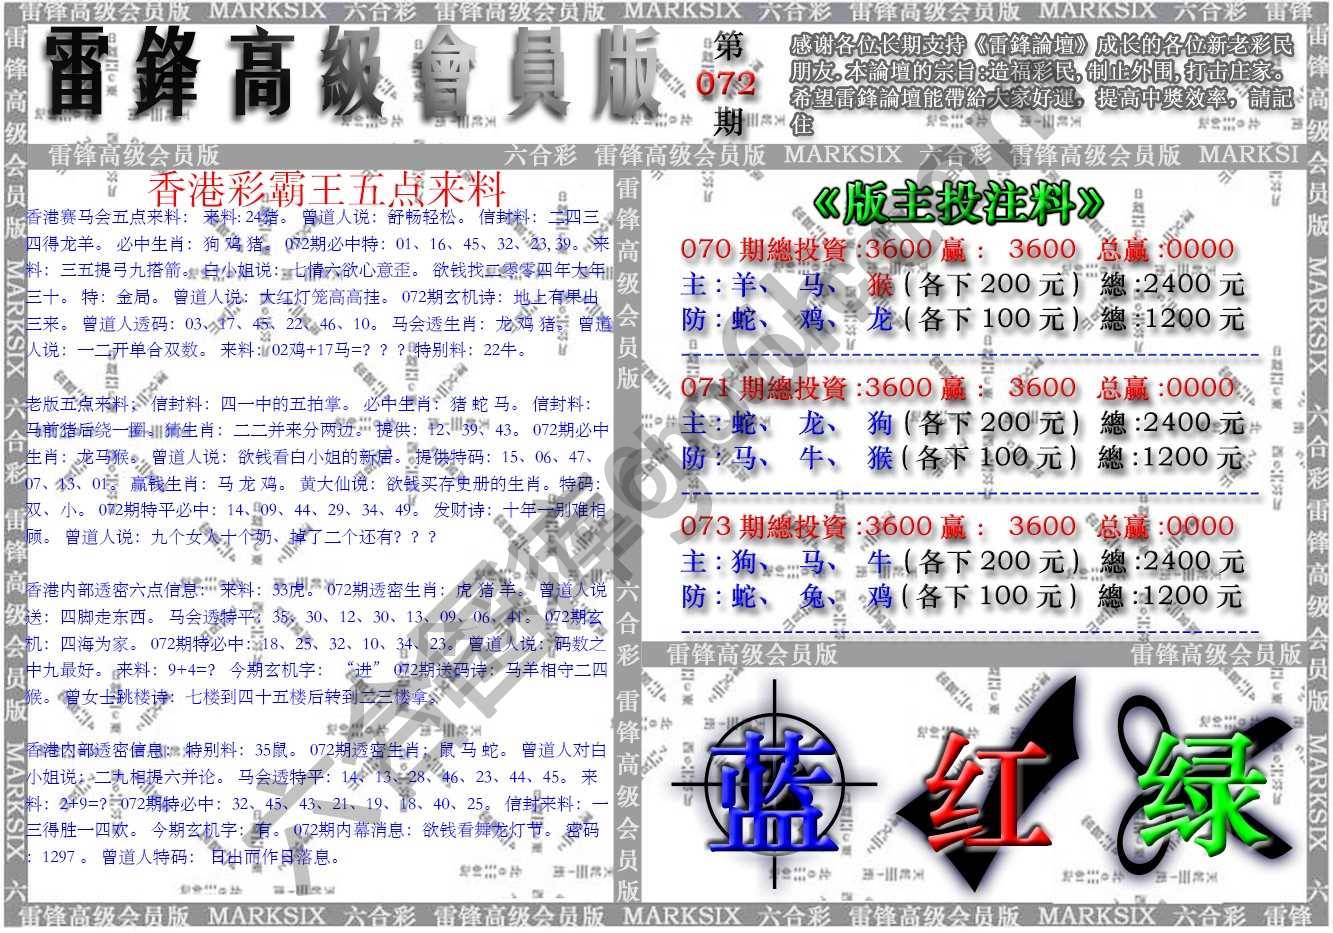 雷锋高级会员版 MARKSIX 六合彩 雷锋高级会员版 MARKSIX 六合彩 雷锋高级会员版 MARKSIX 六合彩 雷锋
雷鋒高級會員版
第
072
期
感谢各位长期支持《雷鋒論壇》成长的各位新老彩民
朋友.本論壇的宗旨:造福彩民,制止外围,打击庄家。
希望雷鋒論壇能帶給大家好運，提高中獎效率，請記
住
雷锋高级会员版 六合彩 雷锋高级会员版 MARKSIX 六合彩 雷锋高级会员版 MARKSI
香港彩霸王五点来料
香港赛马会五点来料： 来料: 24猪。 曾道人说：舒畅轻松。 信封料：二四三
四得龙羊。 必中生肖：狗 鸡 猪。 072期必中特：01、16、45、32、23, 39。 来
料：三五提弓九搭箭。 白小姐说：七情六欲心意歪。 欲钱找二零零四年大年
三十。 特：金局。 曾道人说：大红灯笼高高挂。 072期玄机诗：地上有果出
三来。 曾道人透码：03、17、45、22、46、10。 马会透生肖：龙 鸡 猪。 曾道
人说：一二开单合双数。 来料：02鸡+17马=？？？特别料：22牛。
老版五点来料； 信封料：四一中的五拍掌。 必中生肖：猪 蛇 马。 信封料：
马前猪后绕一圈。 猜生肖：二二并来分两边。 提供：12、39、43。 072期必中
生肖：龙马猴。 曾道人说：欲钱看白小姐的新居。 提供特码：15、06、47、
07、13、01。 赢钱生肖：马 龙 鸡。 黄大仙说：欲钱买存史册的生肖。特码：
双、小。 072期特平必中：14、09、44、29、34、49。 发财诗：十年一别难相
顾。 曾道人说：九个女人十个奶、掉了二个还有？？？
香港内部透密六点信息： 来料：33虎。 072期透密生肖：虎 猪 羊。 曾道人说
送：四脚走东西。 马会透特平：35、30、12、30、13、09、06、41。 072期玄
机：四海为家。 072期特必中：18、25、32、10、34、23。 曾道人说：码数之
中九最好。来料：9+4=？ 今期玄机字： “进” 072期送码诗：马羊相守二四
猴。 曾女士跳楼诗：七楼到四十五楼后转到二三楼拿。
香港内部透密信息： 特别料：35鼠。 072期透密生肖；鼠 马 蛇。 曾道人对白
小姐说：二九相提六并论。 马会透特平：14、13、28、46、23、44、45。 来
料：2+9=？ 072期特必中：32、45、43、21、19、18、40、25。 信封来料：一
三得胜一四欢。 今期玄机字：有。 072期内幕消息：欲钱看舞龙灯节。 密码
：1297 。 曾道人特码： 日出而作日落息。
《版主投注料》
070 期總投資:3600 赢： 3600 总赢:0000
主：羊、 马、 猴(各下 200 元) 總:2400 元
防：蛇、 鸡、 龙(各下 100 元) 總:1200 元
071 期總投資:3600 赢： 3600 总赢:0000
主：蛇、 龙、 狗(各下 200 元) 總:2400 元
防：马、 牛、 猴(各下 100 元) 總:1200 元
073 期總投資:3600 赢： 3600 总赢:0000
主：狗、 马、 牛(各下 200 元) 總:2400 元
防：蛇、 兔、 鸡(各下 100 元) 總:1200 元
雷锋高级会员版 雷锋高级会员版
蓝 红 绿
雷锋高级会员版 MARKSIX 六合彩 雷锋高级会员版 MARKSIX 六合彩 雷锋高级会员版 MARKSIX 六合彩 雷锋